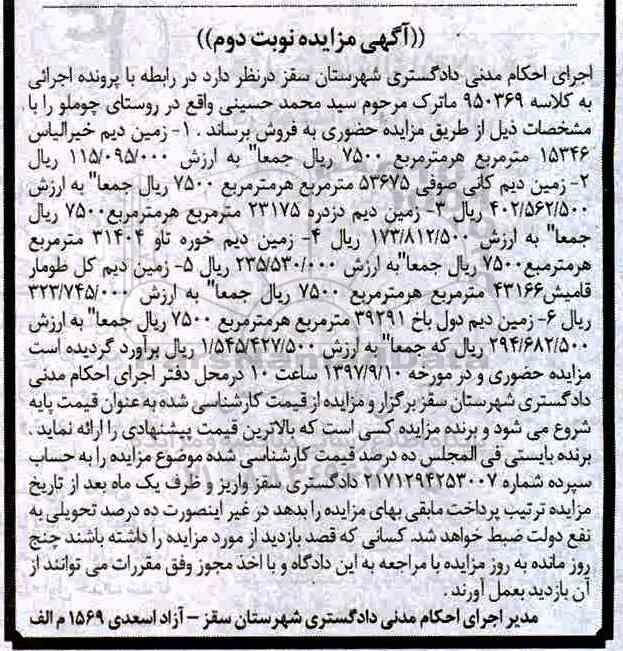 ((آگهی مزایده نوبت دوم))
اجرای احکام مدنی دادگستری شهرستان سقز درنظر دارد در رابطه با پرونده اجرائی
به کلاسه ۹۵۰۳۶۹ ماترک مرحوم سید محمد حسینی واقع در روستای چوملو را با
مشخصات ذیل از طریق مزایده حضوری به فروش برساند . ۱- زمین دیم خیرالیاس
۱۵۳۴۶ مترمربع هرمترمربع ۷۵۰۰ ریال جمعا" به ارزش ۱۱۵/۰۹۵/۰۰۰ ریال
۲- زمین دیم کانی صوفی ۵۳۶۷۵ مترمربع هرمترمربع ۷۵۰۰ ریال جمعا" به ارزش
۴۰۲/۵۶۲/۵۰۰ ریال ۳- زمین دیم دزدره ۲۳۱۷۵ مترمربع هرمترمربع۷۵۰۰ ریال
جمعا" به ارزش ۱۷۳/۸۱۲/۵۰۰ ریال ۴- زمین دیم خوره تاو ۳۱۴۰۴ مترمربع
هرمترمبع۷۵۰۰ ریال جمعا"به ارزش ۲۳۵/۵۳۰/۰۰۰ ریال ۵- زمین دیم کل طومار
قامیش۴۳۱۶۶ مترمربع هرمترمربع ۷۵۰۰ ریال جمعا" به ارزش ۳۲۳/۷۴۵/۰۰۰
ریال ۶- زمین دیم دول باخ ۳۹۲۹۱ مترمربع هرمترمربع ۷۵۰۰ ریال جمعا" به ارزش
۲۹۴/۶۸۲/۵۰۰ ریال که جمعا" به ارزش ۱/۵۴۵/۴۲۷/۵۰۰ ریال برآورد گردیده است
مزایده حضوری و در مورخه ۱۳۹۷/۹/۱۰ ساعت ۱۰ درمحل دفتر اجرای احکام مدنی
دادگستری شهرستان سقز برگزار و مزایده از قیمت کارشناسی شده به عنوان قیمت پایه
شروع می شود و برنده مزایده کسی است که بالاترین قیمت پیشنهادی را ارائه نماید .
برنده بایستی فی المجلس ده درصد قیمت کارشناسی شده موضوع مزایده را به حساب
سپرده شماره ۲۱۷۱۲۹۴۲۵۳۰۰۷ دادگستری سقز واریز و ظرف یک ماه بعد از تاریخ
مزایده ترتیب پرداخت مابقی بهای مزایده را بدهد در غیر اینصورت ده درصد تحویلی به
نفع دولت ضبط خواهد شد. کسانی که قصد بازدید از مورد مزایده را داشته باشند چنج
روز مانده به روز مزایده با مراجعه به این دادگاه و با اخذ مجوز وفق مقررات می توانند از
آن بازدید بعمل آورند .
مدیر اجرای احکام مدنی دادگستری شهرستان سقز – آزاد اسعدی ۱۵۶۹ م الف